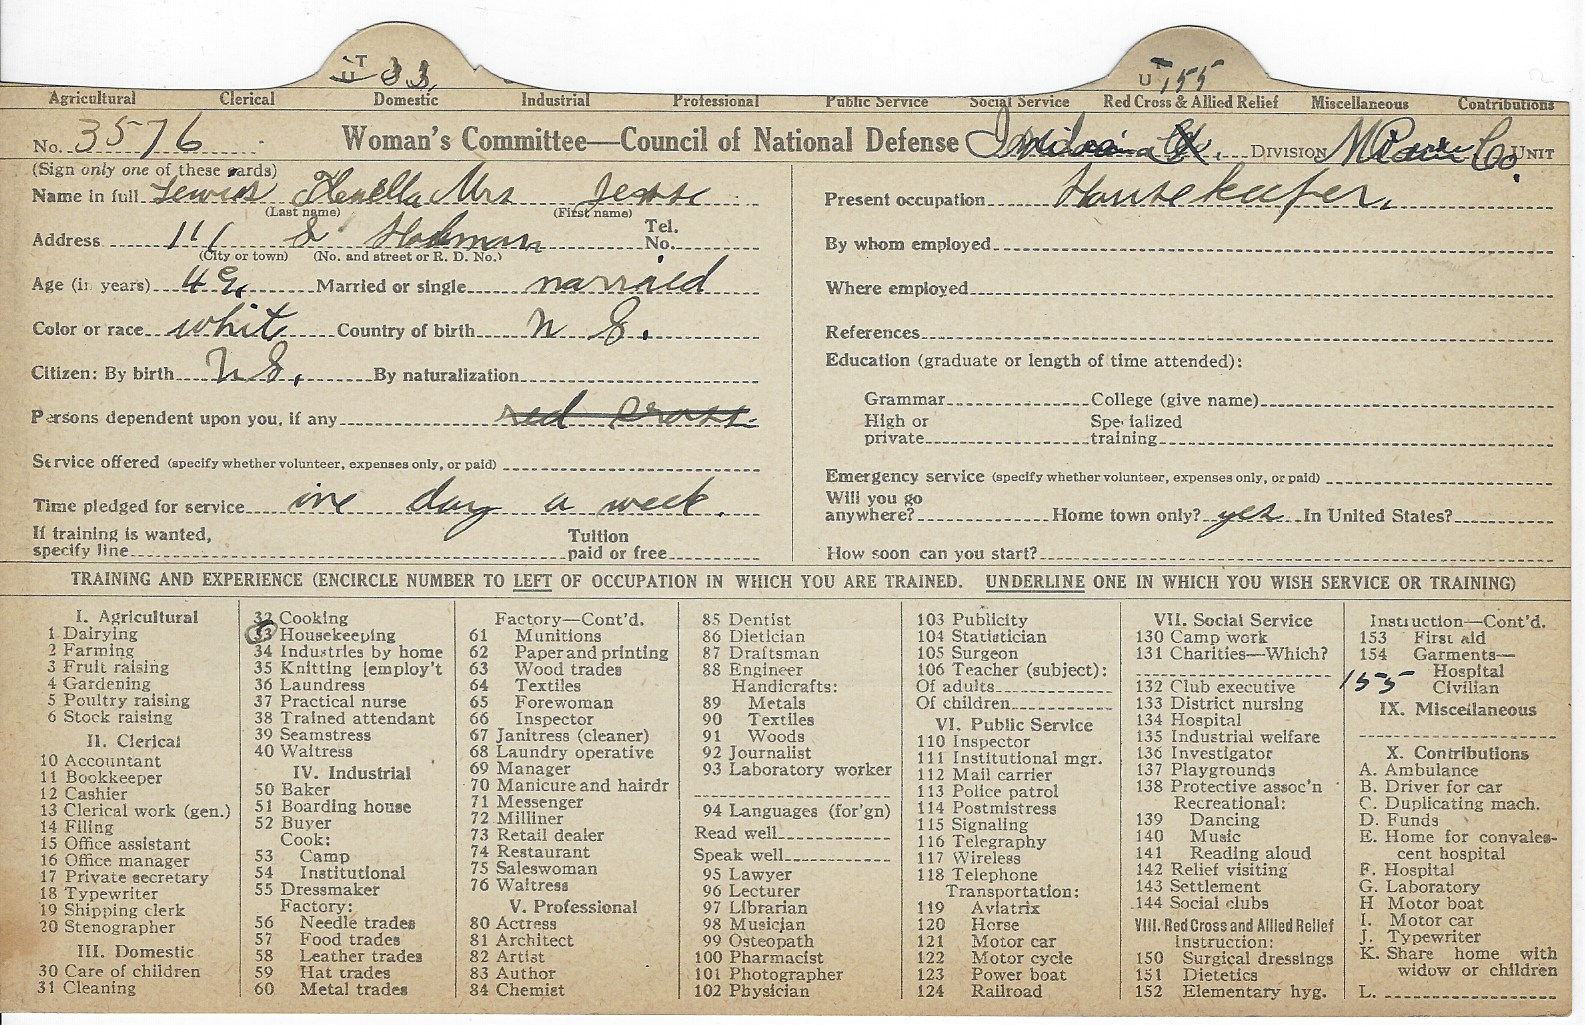 UT 33. UT 155
Agricultural Clerical Domestic Industrial Professional Public Service Social Service Red Cross & Allied Relief Miscellaneous Contributions
No. 3576 Woman's Committee—Council of National Defense DIVISION Co. UNIT
(Sign only one of these cards)
Name in full Lewis Mrs Jesse
(Last name) (First name)
Address 111 S Tel. No.
(City or town) (No. and street or R. D. No.)
Age (in years) 49. Married or single married
Color or race white Country of birth U S.
Citizen: By birth U S. By naturalization
Persons dependent upon you, if any red cross
Service offered (specify whether volunteer, expenses only, or paid)
Time pledged for service one day a week.
If training is wanted, specify line Tuition paid or free
Present occupation Housekeeper.
By whom employed
Where employed
References
Education (graduate or length of time attended):
Grammar College (give name)
High or private Specialized training
Emergency service (specify whether volunteer, expenses only, or paid)
Will you go anywhere? Home town only? yes In United States?
How soon can you start?
TRAINING AND EXPERIENCE (ENCIRCLE NUMBER TO LEFT OF OCCUPATION IN WHICH YOU ARE TRAINED. UNDERLINE ONE IN WHICH YOU WISH SERVICE OR TRAINING)
I. Agricultural
1 Dairying
2 Farming
3 Fruit raising
4 Gardening
5 Poultry raising
6 Stock raising
II. Clerical
10 Accountant
11 Bookkeeper
12 Cashier
13 Clerical work (gen.)
14 Filing
15 Office assistant
16 Office manager
17 Private secretary
18 Typewriter
19 Shipping clerk
20 Stenographer
III. Domestic
30 Care of children
31 Cleaning
32 Cooking
33 Housekeeping
34 Industries by home
35 Knitting [employ't
36 Laundress
37 Practical nurse
38 Trained attendant
39 Seamstress
40 Waitress
IV. Industrial
50 Baker
51 Boarding house
52 Buyer
Cook:
53 Camp
54 Institutional
55 Dressmaker
Factory:
56 Needle trades
57 Food trades
58 Leather trades
59 Hat trades
60 Metal trades
Factory—Cont'd.
61 Munitions
62 Paper and printing
63 Wood trades
64 Textiles
65 Forewoman
66 Inspector
67 Janitress (cleaner)
68 Laundry operative
69 Manager
70 Manicure and hairdr
71 Messenger
72 Milliner
73 Retail dealer
74 Restaurant
75 Saleswoman
76 Waitress
V. Professional
80 Actress
81 Architect
82 Artist
83 Author
84 Chemist
85 Dentist
86 Dietician
87 Draftsman
88 Engineer
Handicrafts:
89 Metals
90 Textiles
91 Woods
92 Journalist
93 Laboratory worker
94 Languages (for'gn)
Read well
Speak well
95 Lawyer
96 Lecturer
97 Librarian
98 Musician
99 Osteopath
100 Pharmacist
101 Photographer
102 Physician
103 Publicity
104 Statistician
105 Surgeon
106 Teacher (subject):
Of adults
Of children
VI. Public Service
110 Inspector
111 Institutional mgr.
112 Mail carrier
113 Police patrol
114 Postmistress
115 Signaling
116 Telegraphy
117 Wireless
118 Telephone
Transportation:
119 Aviatrix
120 Horse
121 Motor car
122 Motor cycle
123 Power boat
124 Railroad
VII. Social Service
130 Camp work
131 Charities—Which?
132 Club executive
133 District nursing
134 Hospital
135 Industrial welfare
136 Investigator
137 Playgrounds
138 Protective assoc'n
Recreational:
139 Dancing
140 Music
141 Reading aloud
142 Relief visiting
143 Settlement
144 Social clubs
VIII. Red Cross and Allied Relief
Instruction:
150 Surgical dressings
151 Dietetics
152 Elementary hyg.
Instruction—Cont'd.
153 First aid
154 Garments—
Hospital
155 Civilian
IX. Miscellaneous
X. Contributions
A. Ambulance
B. Driver for car
C. Duplicating mach.
D. Funds
E. Home for convales-
cent hospital
F. Hospital
G. Laboratory
H Motor boat
I. Motor car
J. Typewriter
K. Share home with
widow or children
L.